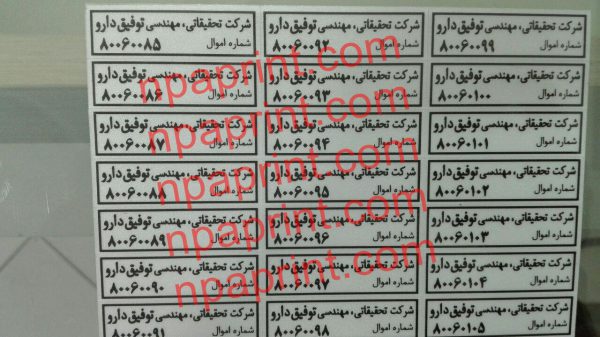 شرکت تحقیقاتی، مهندسی توفیق دارو
شماره اموال ۸۰۰۶۰۰۸۵
شرکت تحقیقاتی، مهندسی توفیق دارو
شماره اموال ۸۰۰۶۰۰۸۶
شرکت تحقیقاتی، مهندسی توفیق دارو
شماره اموال ۸۰۰۶۰۰۸۷
شرکت تحقیقاتی، مهندسی توفیق دارو
شماره اموال ۸۰۰۶۰۰۸۸
شرکت تحقیقاتی، مهندسی توفیق دارو
شماره اموال ۸۰۰۶۰۰۸۹
شرکت تحقیقاتی، مهندسی توفیق دارو
شماره اموال ۸۰۰۶۰۰۹۰
شرکت تحقیقاتی، مهندسی توفیق دارو
شماره اموال ۸۰۰۶۰۰۹۱
شرکت تحقیقاتی، مهندسی توفیق دارو
شماره اموال ۸۰۰۶۰۰۹۲
شرکت تحقیقاتی، مهندسی توفیق دارو
شماره اموال ۸۰۰۶۰۰۹۳
شرکت تحقیقاتی، مهندسی توفیق دارو
شماره اموال ۸۰۰۶۰۰۹۴
شرکت تحقیقاتی، مهندسی توفیق دارو
شماره اموال ۸۰۰۶۰۰۹۵
شرکت تحقیقاتی، مهندسی توفیق دارو
شماره اموال ۸۰۰۶۰۰۹۶
شرکت تحقیقاتی، مهندسی توفیق دارو
شماره اموال ۸۰۰۶۰۰۹۷
شرکت تحقیقاتی، مهندسی توفیق دارو
شماره اموال ۸۰۰۶۰۰۹۸
شرکت تحقیقاتی، مهندسی توفیق دارو
شماره اموال ۸۰۰۶۰۰۹۹
شرکت تحقیقاتی، مهندسی توفیق دارو
شماره اموال ۸۰۰۶۰۱۰۰
شرکت تحقیقاتی، مهندسی توفیق دارو
شماره اموال ۸۰۰۶۰۱۰۱
شرکت تحقیقاتی، مهندسی توفیق دارو
شماره اموال ۸۰۰۶۰۱۰۲
شرکت تحقیقاتی، مهندسی توفیق دارو
شماره اموال ۸۰۰۶۰۱۰۳
شرکت تحقیقاتی، مهندسی توفیق دارو
شماره اموال ۸۰۰۶۰۱۰۴
شرکت تحقیقاتی، مهندسی توفیق دارو
شماره اموال ۸۰۰۶۰۱۰۵
npaprint.com
npaprint.com
npaprint.com
npaprint.com
npaprint.com